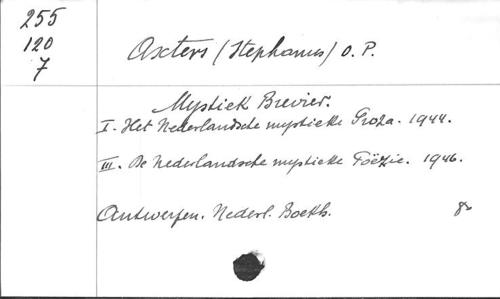 255
120
7
Axters (Stephanus) O. P.
Mystiek Brevier.
I. Het Nederlandsche mystieke Proza. 1944.
III. De Nederlandsche mystieke Poëzie. 1946.
Antwerpen. Nederl. Boekh. 8o